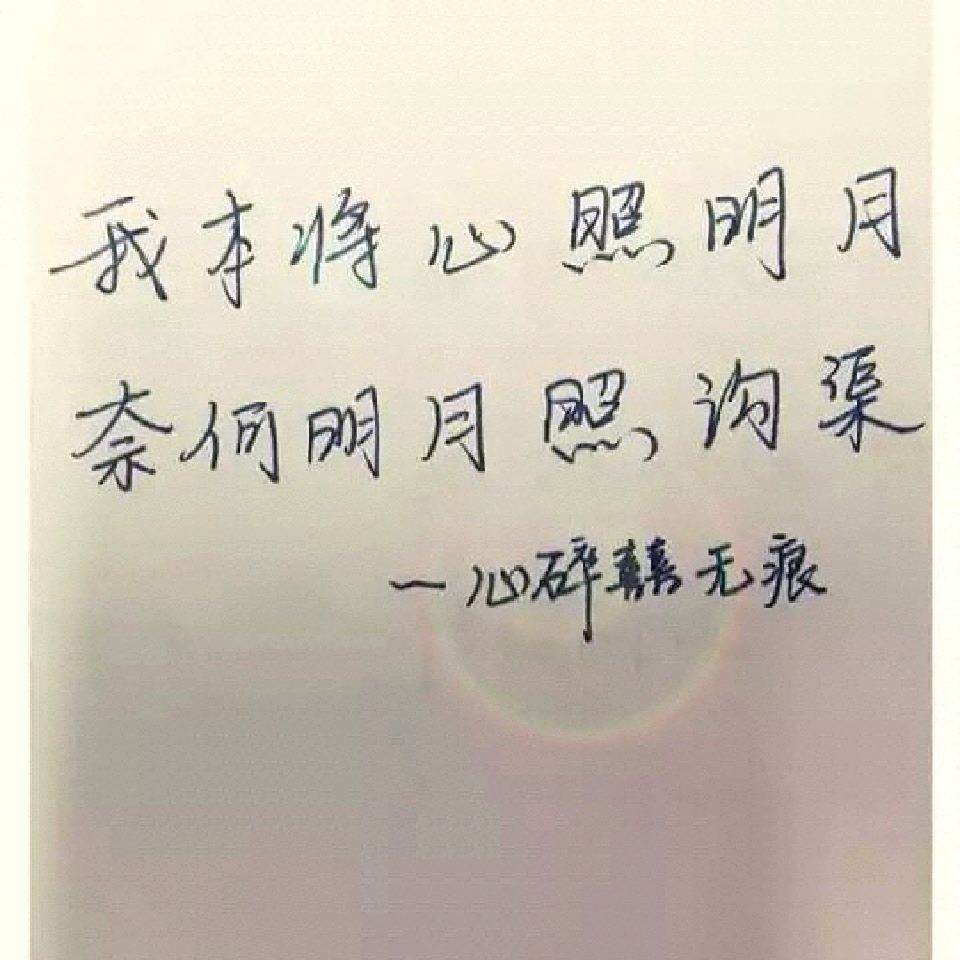 我本将心照明月
奈何明月照沟渠
一心碎囍无痕